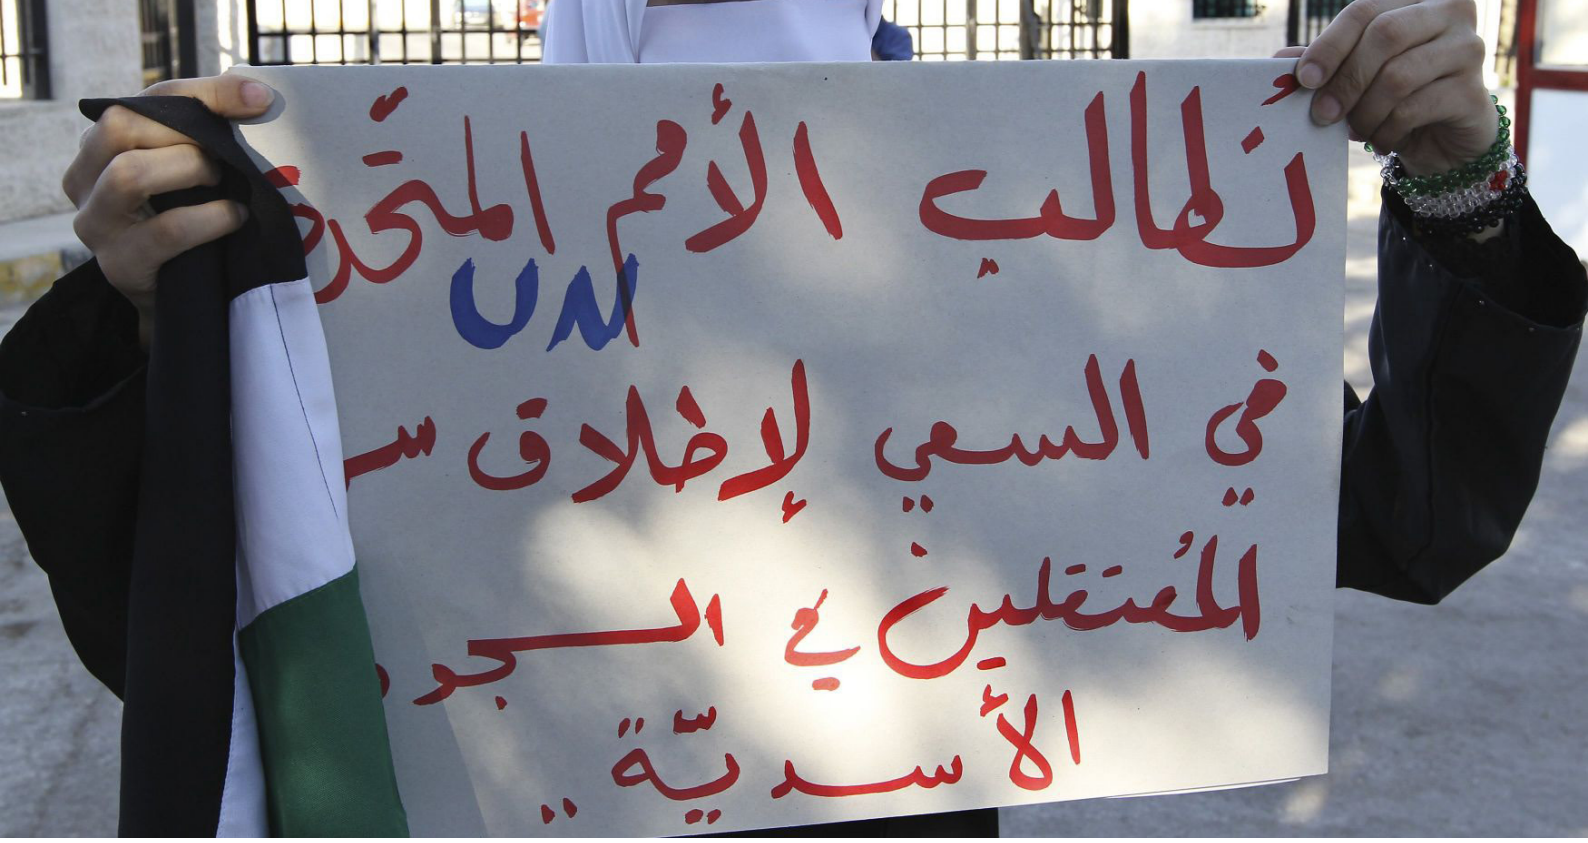 نُطالب الأمم المتّحدة
في السعي لإطلاق سر
المُعتقلين في السجو
الأسديّة ..